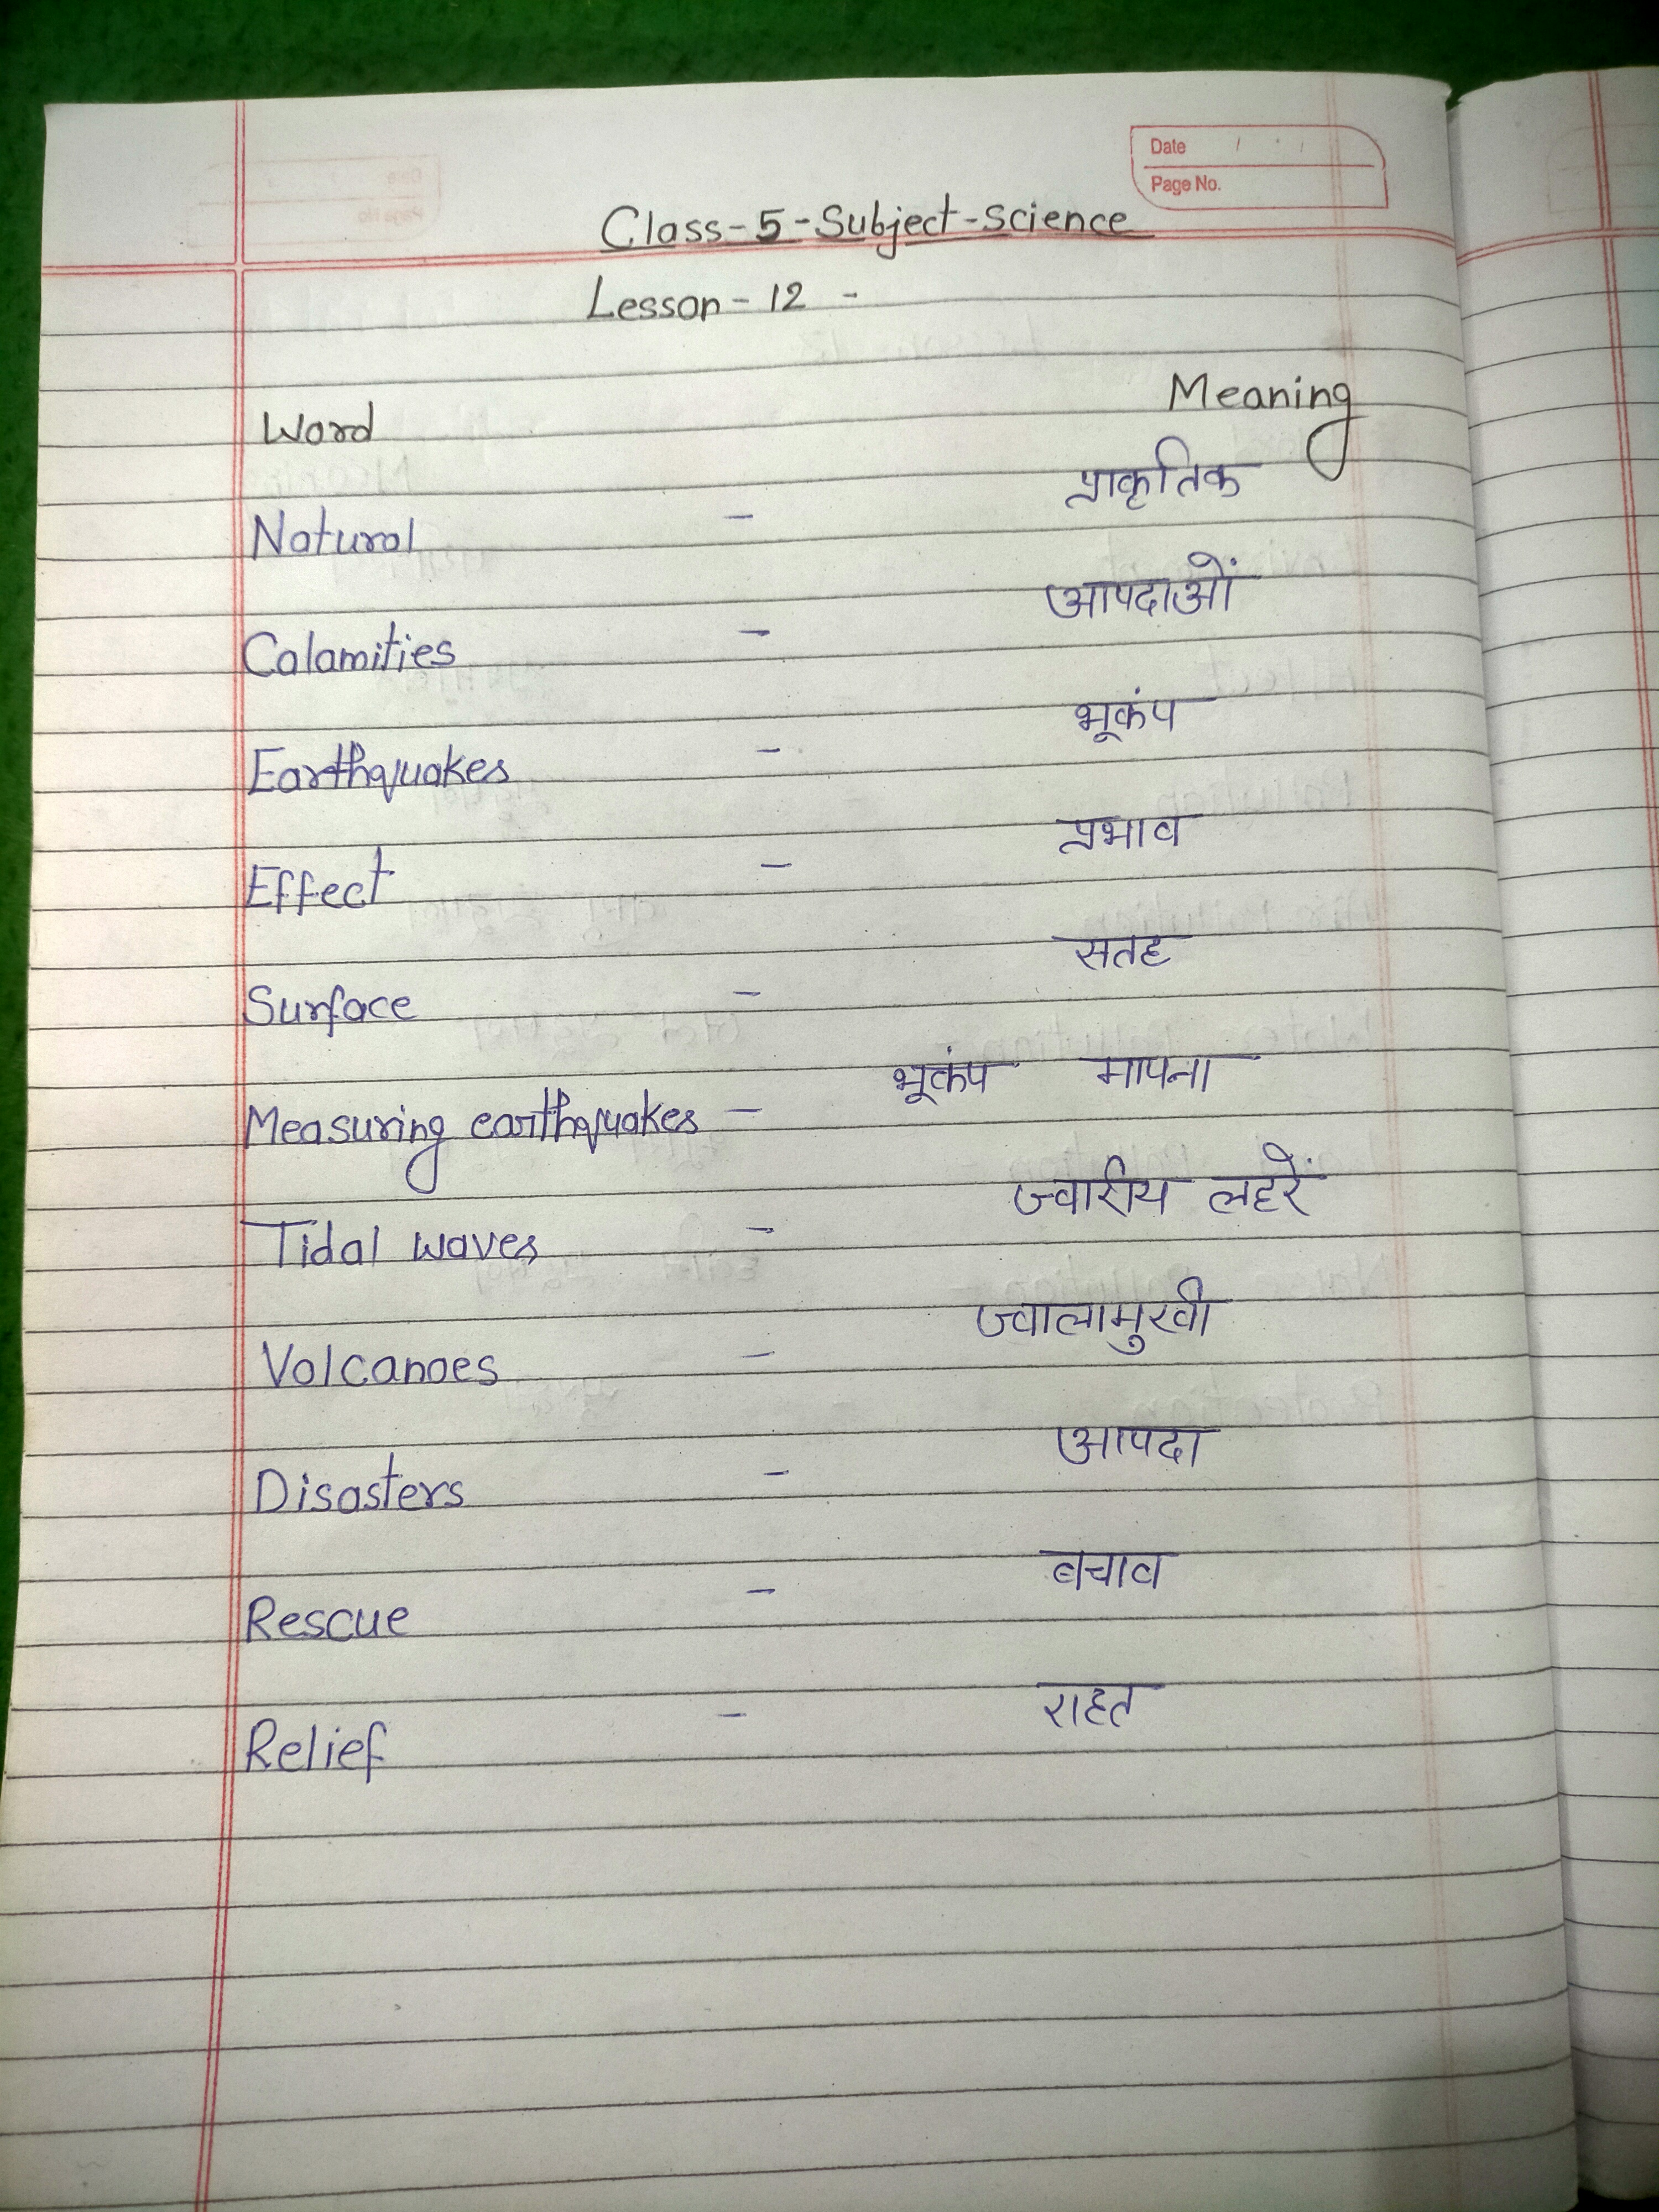 Date / / /
Page No.
Class-5-Subject-Science
Lesson-12 -
Word Meaning
Natural - प्राकृतिक
Calamities - आपदाओं
Earthquakes - भूकंप
Effect - प्रभाव
Surface - सतह
Measuring earthquakes - भूकंप मापना
Tidal waves - ज्वारीय लहरें
Volcanoes - ज्वालामुखी
Disasters - आपदा
Rescue - बचाव
Relief - राहत